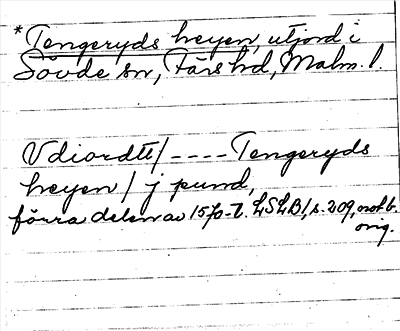 * Tengeryds heyen, utjord i
Sövde sn, Färs hd, Malm. l.
Vdiordtt / - - - - Tengeryds
heyen / j pund,
förra delen av 1570-t. LSLB1, s. 209, not b.
orig.